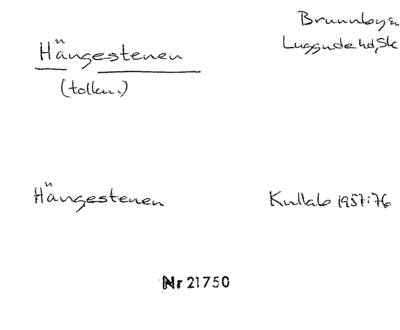 Brunnby sn
Hängestenen Luggude hd, Sk
(tolkn.)
Hängestenen Kullabo 1957:76
Nr 21750